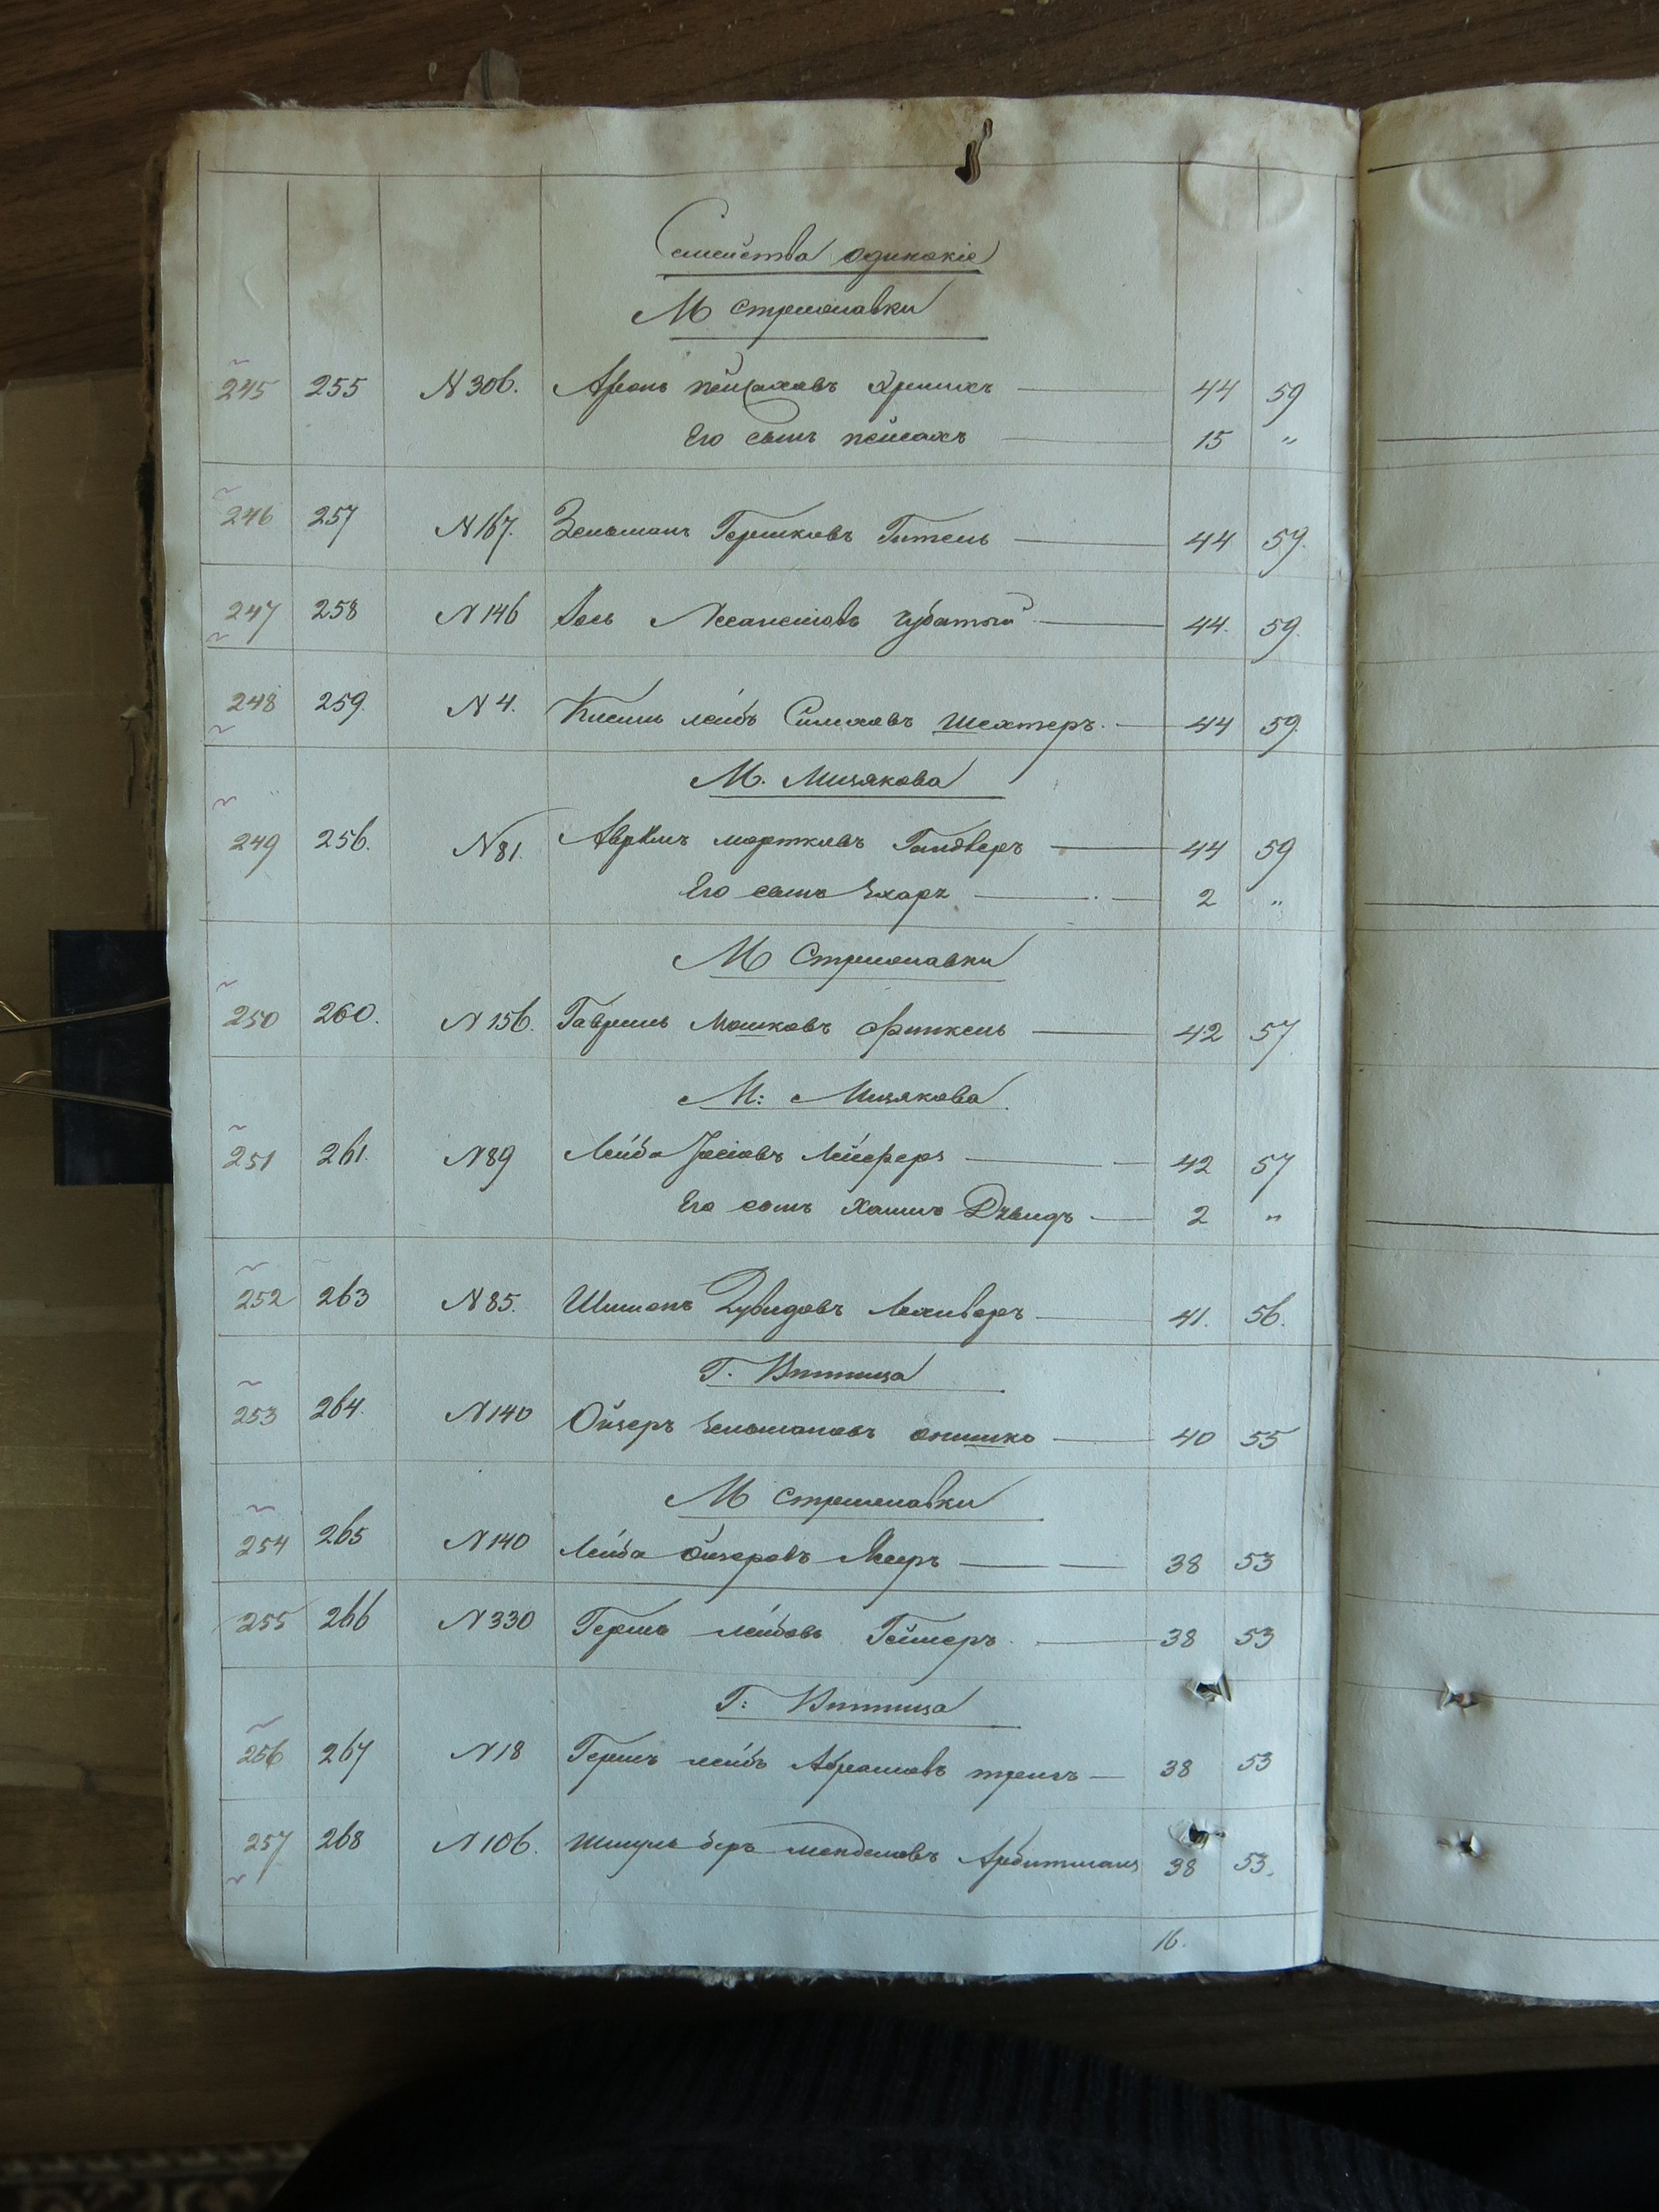 Семейства одинокіе
М Стрижавки
245 255 N 306. Аронъ Пейсаховъ 44 59
Его сынъ Пейсахъ 15 "
246 257 N 167. Зельманъ Гершковъ Гитель 44 59.
247 258 N 146 Іось чубатый 44. 59.
248 259. N 4. лейбъ Симховъ Шехтеръ. 44 59.
М. Мизякова
249 256. N 81. Аврумъ мортковъ 44 59
Его сынъ Зхаръ 2 "
М Стрижавки
250 260. N 156. Гавриль Мошковъ Финкель 42 57
М: Мизякова
251 261. N 89 Лейба Іосіовъ Лейферъ 42 57
Его сынъ Хаимъ Дувидъ 2 "
252 263 N 85. Шимонъ Дувидовъ 41. 56.
Г. Винница
253 264. N 140 Ойзеръ Зельмановъ 40 55
М Стрижавки
254 265 N 140 Лейба Ойзеровъ 38 53
255 266 N 330 Гершъ лейбовъ 38 53
Г: Винница
256 267 N 18 Гершъ лейбъ Абрамовъ 38 53
257 268 N 106. Шмуль беръ менделовъ Арбитманъ 38 53.
16.